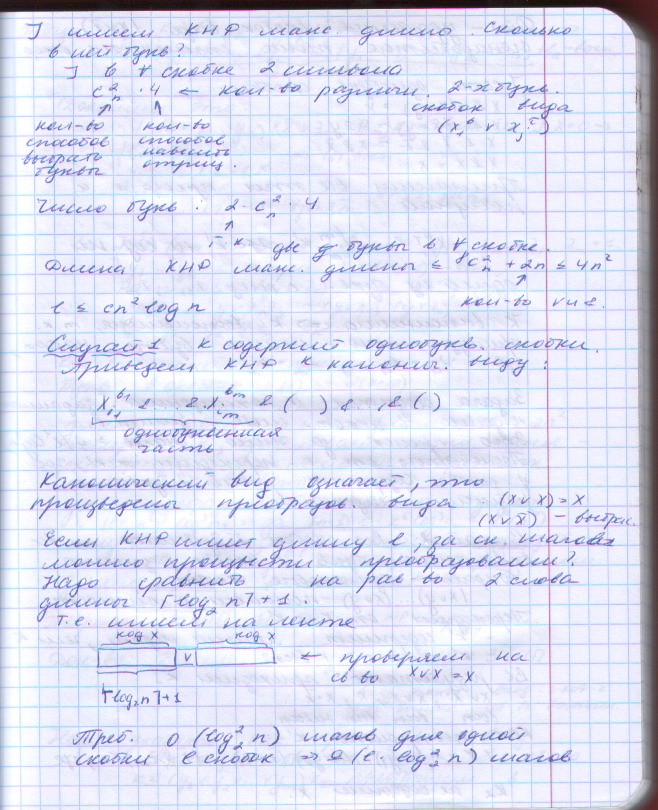 ] имеем КНР макс. длины. Сколько
в ней букв?
] в ∀ скобке 2 символа
C²ₙ · 4 ← кол-во различн. 2-х букв.
скобок вида
(xᵢ ∨ xⱼ)
кол-во кол-во
способов способов
выбрать навесить
буквы отриц.
Число букв: 2 · C²ₙ · 4
две буквы в ∀ скобке.
Длина КНР макс. длины ≤ 8C²ₙ + 2n ≤ 4n²
l ≤ cn² log n кол-во ∨ и &.
Случай 1 К содержит однобукв. скобки.
Приведем КНР к канонич. виду:
& ( ) & .. & ( )
однобуквенная
часть
Канонический вид означает, что
произведены преобразов. вида (x∨x) = x
(x∨x̄) – выбрас.
Если КНР имеет длину l, за ск. шагов
можно произвести преобразования?
Надо сравнить на рав-во 2 слова
длины ⌈log₂ n⌉+1.
Т.е. имеем на ленте
код x код x
∨ ← проверяем на
св-во x∨x = x
⌈log₂n⌉+1
Треб. O (log²₂ n) шагов для одной
скобки l скобок ⇒ (l · log²₂ n) шагов